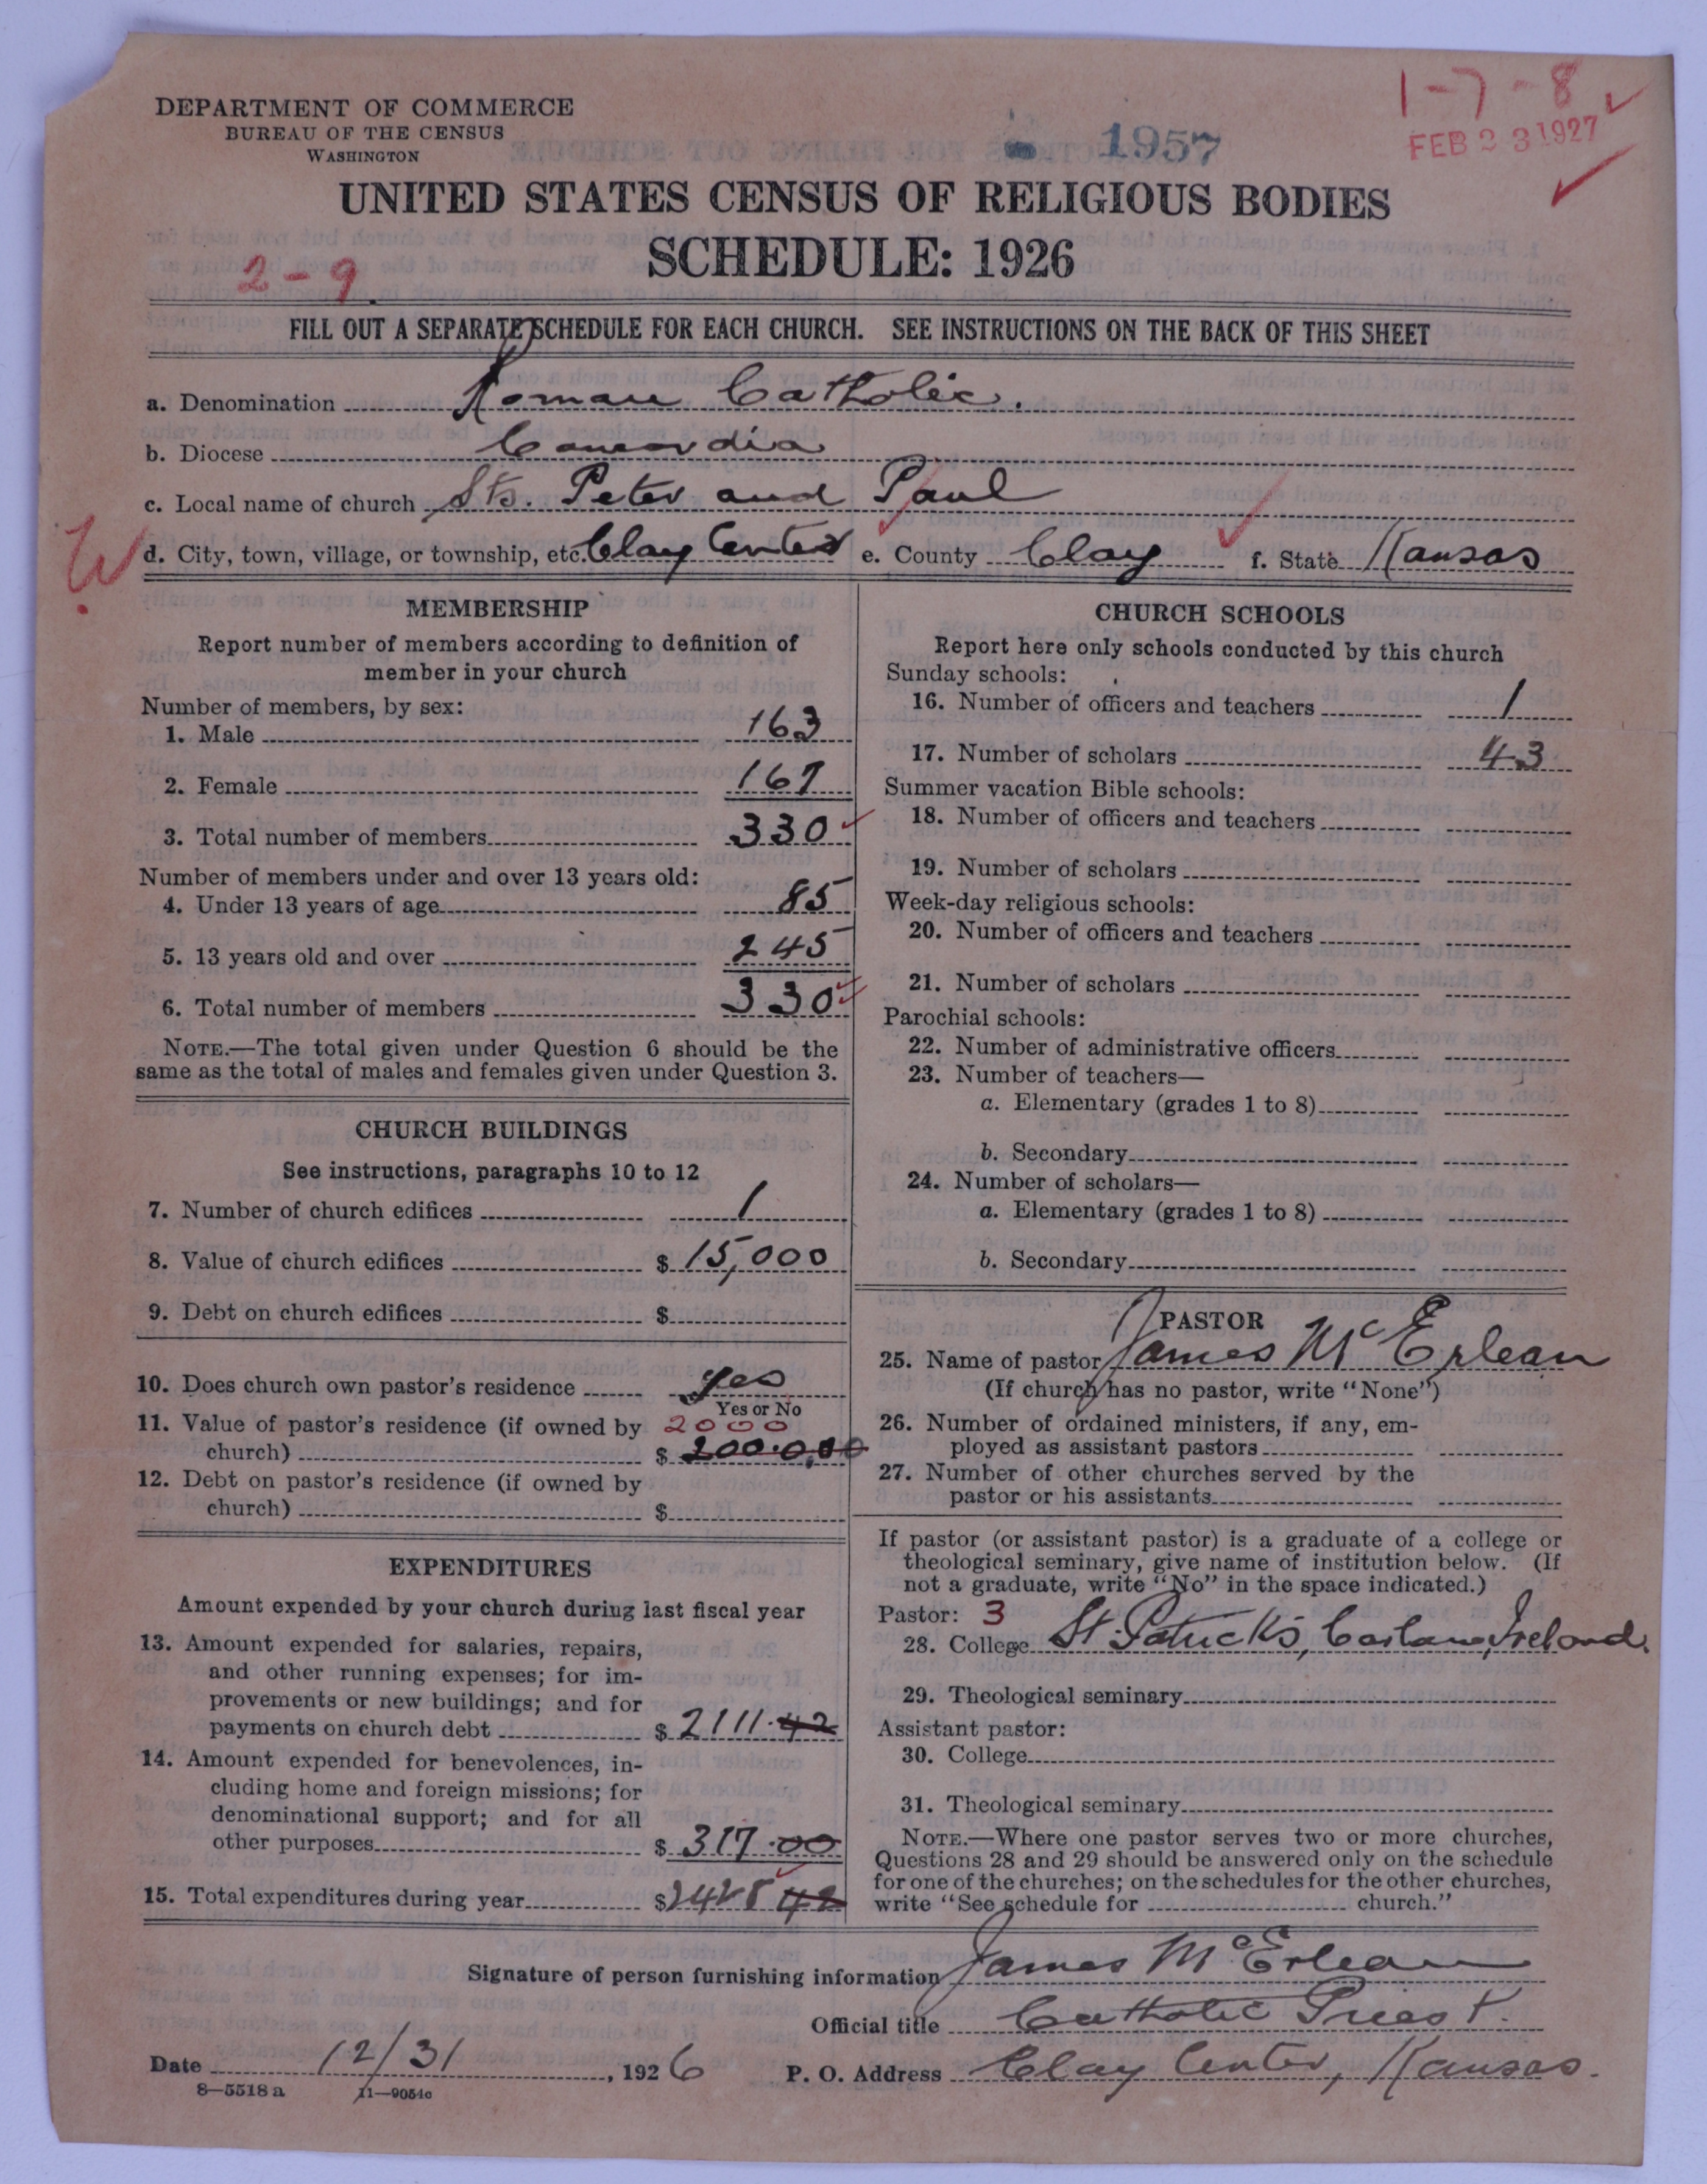 DEPARTMENT OF COMMERCE
BUREAU OF THE CENSUS
WASHINGTON
1957
1-7-8
FEB 23 1927
UNITED STATES CENSUS OF RELIGIOUS BODIES
SCHEDULE: 1926
2-9
FILL OUT A SEPARATE SCHEDULE FOR EACH CHURCH. SEE INSTRUCTIONS ON THE BACK OF THIS SHEET
a. Denomination Roman Catholic.
b. Diocese Concordia
c. Local name of church Sts. Peter and Paul
d. City, town, village, or township, etc. Clay Center e. County Clay f. State Kansas
MEMBERSHIP
Report number of members according to definition of
member in your church
Number of members, by sex:
1. Male 163
2. Female 167
3. Total number of members 330
Number of members under and over 13 years old:
4. Under 13 years of age 85
5. 13 years old and over 245
6. Total number of members 330
NOTE.—The total given under Question 6 should be the
same as the total of males and females given under Question 3.
CHURCH BUILDINGS
See instructions, paragraphs 10 to 12
7. Number of church edifices 1
8. Value of church edifices $ 15,000
9. Debt on church edifices $
10. Does church own pastor's residence Yes
Yes or No
11. Value of pastor's residence (if owned by 2000
church) $ 200.0,00
12. Debt on pastor's residence (if owned by
church) $
EXPENDITURES
Amount expended by your church during last fiscal year
13. Amount expended for salaries, repairs,
and other running expenses; for im-
provements or new buildings; and for
payments on church debt $ 2111.42
14. Amount expended for benevolences, in-
cluding home and foreign missions; for
denominational support; and for all
other purposes $ 317.00
15. Total expenditures during year $ 2428 42
CHURCH SCHOOLS
Report here only schools conducted by this church
Sunday schools:
16. Number of officers and teachers 1
17. Number of scholars 43
Summer vacation Bible schools:
18. Number of officers and teachers
19. Number of scholars
Week-day religious schools:
20. Number of officers and teachers
21. Number of scholars
Parochial schools:
22. Number of administrative officers
23. Number of teachers—
a. Elementary (grades 1 to 8)
b. Secondary
24. Number of scholars—
a. Elementary (grades 1 to 8)
b. Secondary
PASTOR
25. Name of pastor James McErlean
(If church has no pastor, write "None")
26. Number of ordained ministers, if any, em-
ployed as assistant pastors
27. Number of other churches served by the
pastor or his assistants
If pastor (or assistant pastor) is a graduate of a college or
theological seminary, give name of institution below. (If
not a graduate, write "No" in the space indicated.)
Pastor: 3
28. College St. Patrick's, Ireland.
29. Theological seminary
Assistant pastor:
30. College
31. Theological seminary
NOTE.—Where one pastor serves two or more churches,
Questions 28 and 29 should be answered only on the schedule
for one of the churches; on the schedules for the other churches,
write "See schedule for church."
Signature of person furnishing information James McErlean
Official title Catholic Priest.
Date 12/31, 1926 P. O. Address Clay Center, Kansas.
8—5518 a 11—9051c